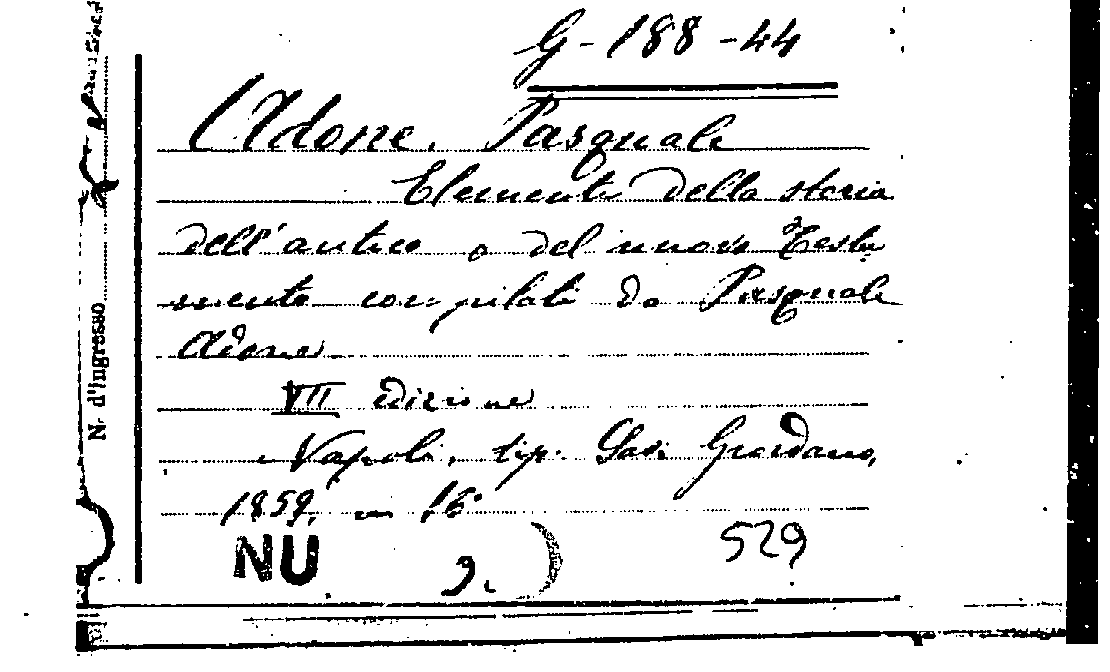 G-188-44
Adone, Pasquale
Elementi della storia
dell'antico e del nuovo Testa
mento compilati da Pasquale
Adone
VII edizione
Napoli, tip. Giordano,
1859, in 16°
NU
529
N. d'Ingresso